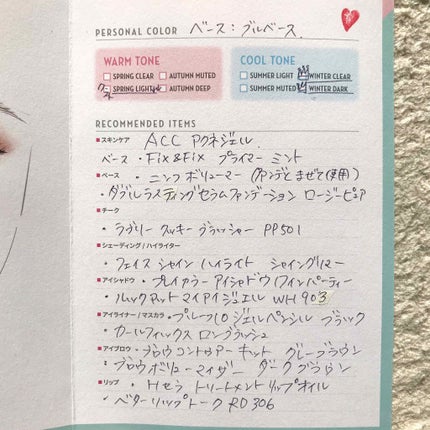 PERSONAL COLOR ベース:ブルベース
WARM TONE
COOL TONE
SPRING CLEAR AUTUMN MUTED
SUMMER LIGHT WINTER CLEAR
SPRING LIGHT AUTUMN DEEP
SUMMER MUTED WINTER DARK
RECOMMENDED ITEMS
■スキンケア ACC アクネジェル
ベース・Fix&Fix プライマー ミント
■ベース・ニンフ ボリューマー (ファンデとまぜて使用)
・ダブルラスティングセラムファンデーション ロージーピュア
■チーク
・ラブリー クッキー ブラッシャー PP501
■シェーディング/ハイライター
・フェイス シャイン ハイライト シャイングリマー
■アイシャドウ・プレイカラー アイシャドウ ワインパーティー
・ルックアット マイアイ ジュエル WH903
■アイライナー/マスカラ・プレー10 ジェルペンシル ブラック
カールフィックス ロングラッシュ
■アイブロウ・ブロウコントゥアー キット グレーブラウン
・ブロウ ボリューマイザー ダークブラウン
■リップ・Hセラ トリートメントリップオイル
・ベターリップトーク RD306